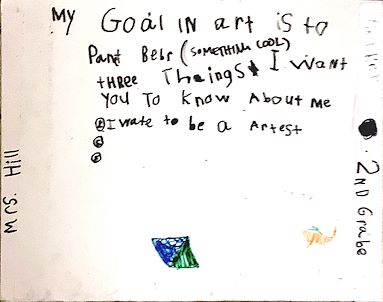 My Goal in art is to
Pant Bebr (SOMETHING COOL)
tHREE Thaings I want
you To Know About me
I wate to be a Artest
Mrs. Hill
2ND Grabe